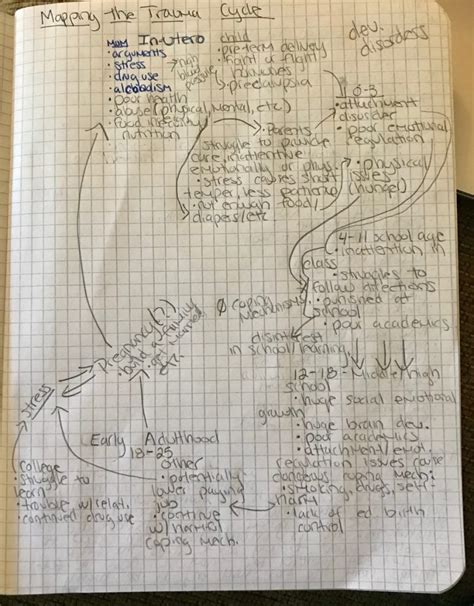 Mapping the Trauma Cycle
dev.
disorders
Mom In-Utero child
• arguments
• stress
• drug use
• alcoholism
• poor health
• abuse (physical, mental, etc)
• food insecurity
nutrition
high
blood
pressure
• preterm delivery
• fight or flight
hormones
• preclampsia
0-3
• attachment
disorder
• poor emotional
regulation
• physical
issues
(hunger)
• Parents
struggle to provide
care, inattentive
emotionally or phys.
• stress causes short
temper, less patience
• not enough food/
diapers/etc
4-11 school age
• inattention in
class
• struggles to
follow directions
• punished at
school
• poor academics
Ø coping
mechanisms
disinterest
in school/learning.
12-18- Middle/high
school
• huge social emotional
growth
• huge brain dev.
• poor academics
• attachment/emot.
regulation issues cause
dangerous coping mech.
• smoking, drugs, self-
harm
• lack of ed. birth
control
Early Adulthood
18-25
other
• potentially
lower paying
job
• continue
w/
coping mech.
college
• struggle to
learn
• trouble w/relat.
• continued drug use
Stress
Pregnancy(?)
build a family
get married
etc.